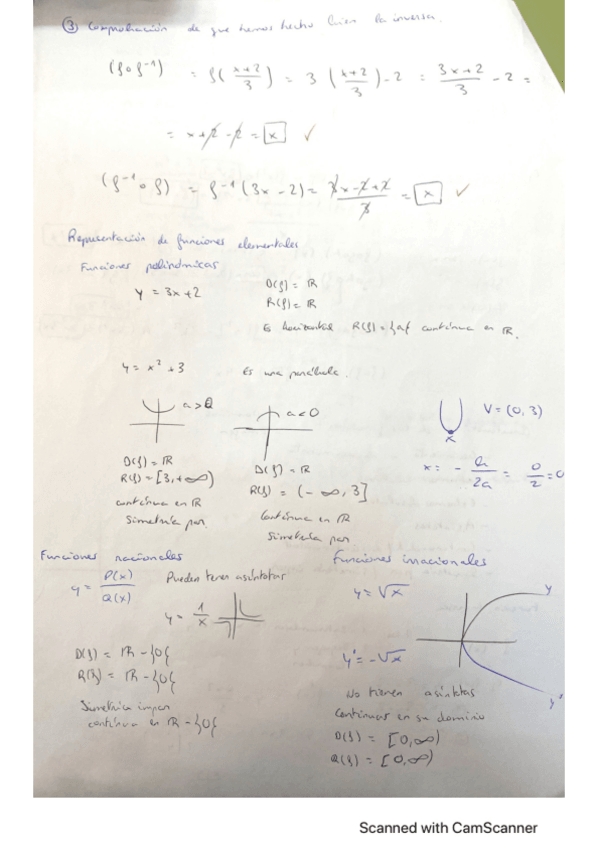 ③ Comprobación de que hemos hecho bien la inversa.
(f∘f⁻¹) = f((x+2)/3) = 3 ((x+2)/3) - 2 = (3x+2)/3 - 2 =
= x+2-2 = x ✓
(f⁻¹∘f) = f⁻¹(3x-2) = (3x-2+2)/3 = x ✓
Representación de funciones elementales
Funciones polinómicas
y = 3x+2
D(f) = ℝ
R(f) = ℝ
Es horizontal R(f) = {a} continua en ℝ.
y = x² + 3 Es una parábola.
a>0
a<0
V = (0, 3)
x
x = - b/2a = 0/2 = 0
D(f) = ℝ
R(f) = [3, +∞)
continua en ℝ
Simetría par
D(f) = ℝ
R(f) = (-∞, 3]
Continua en ℝ
Simetría par
Funciones racionales
y = P(x)/Q(x)
Pueden tener asíntotas
y = 1/x
D(f) = ℝ - {0}
R(f) = ℝ - {0}
Simetría impar
continua en ℝ - {0}
Funciones irracionales
y = √x
y
y' = -√x
y'
No tienen asíntotas
Continuas en su dominio
D(f) = [0, ∞)
R(f) = [0, ∞)
Scanned with CamScanner